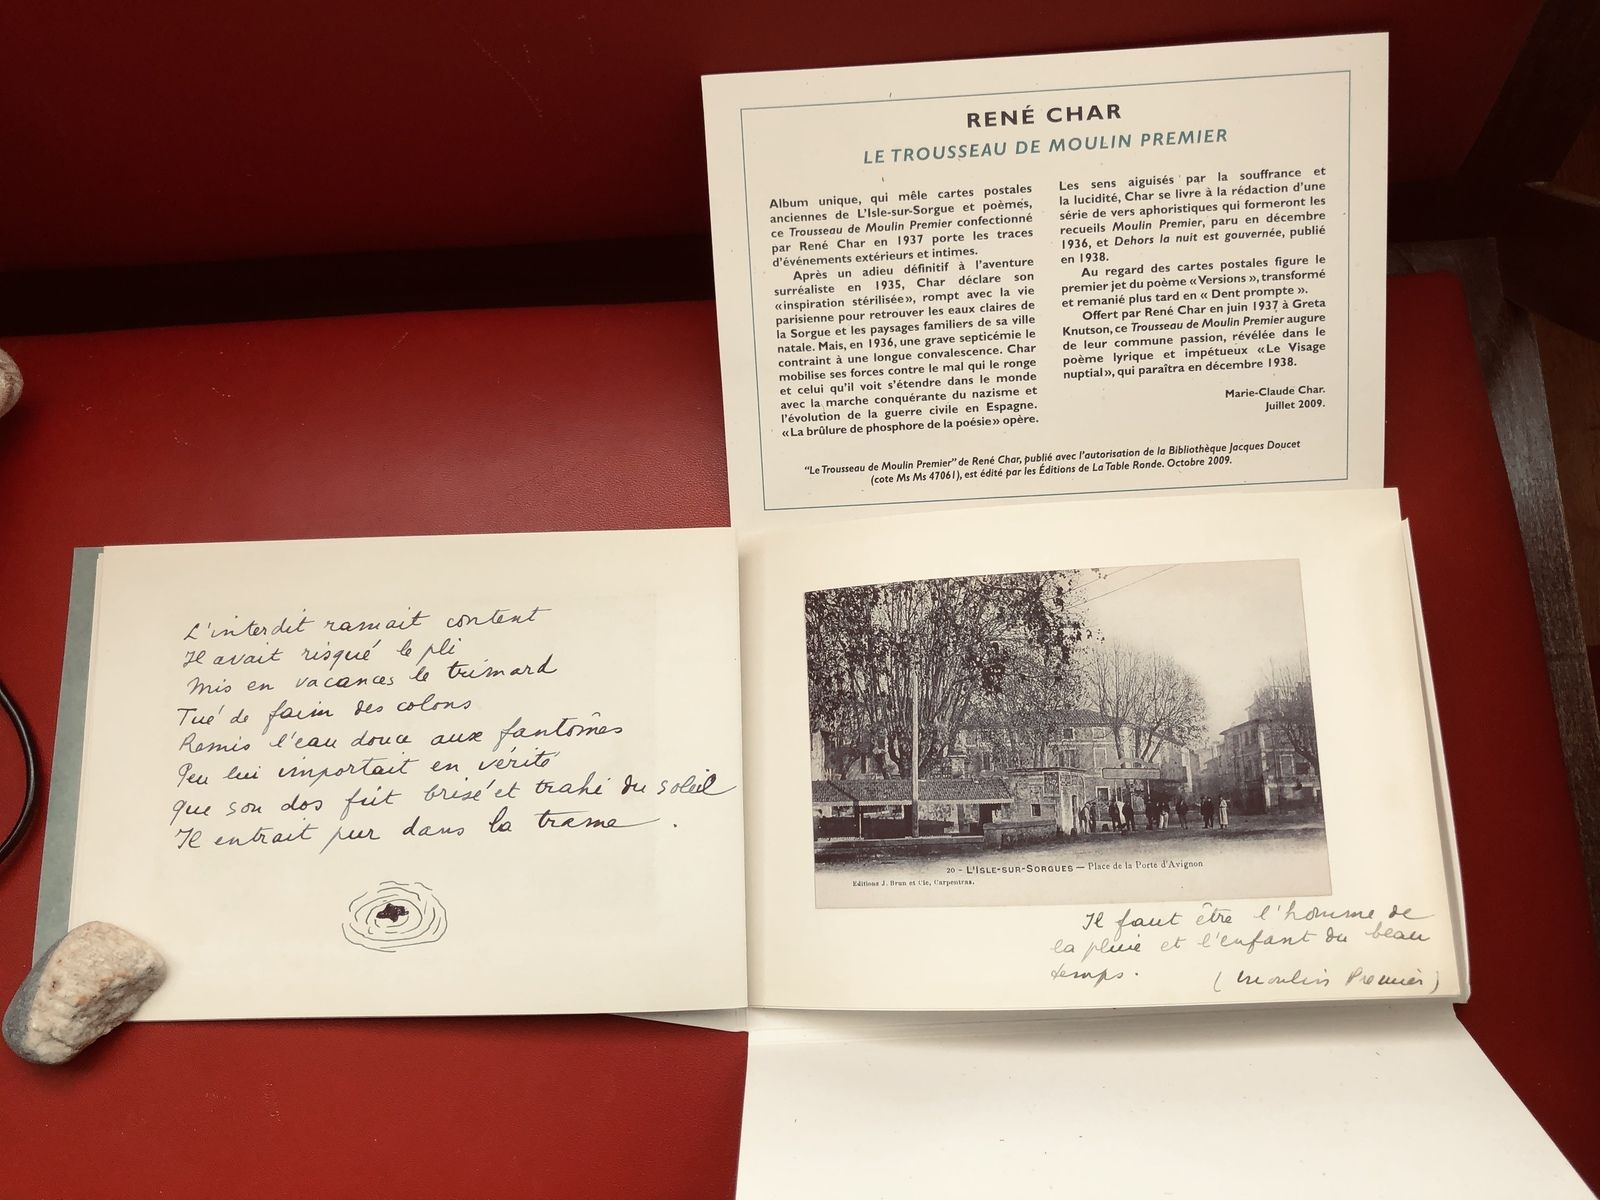 RENÉ CHAR
LE TROUSSEAU DE MOULIN PREMIER
Album unique, qui mêle cartes postales
anciennes de L'Isle-sur-Sorgue et poèmes,
ce Trousseau de Moulin Premier confectionné
par René Char en 1937 porte les traces
d'événements extérieurs et intimes.
Après un adieu définitif à l'aventure
surréaliste en 1935, Char déclare son
«inspiration stérilisée», rompt avec la vie
parisienne pour retrouver les eaux claires de
la Sorgue et les paysages familiers de sa ville
natale. Mais, en 1936, une grave septicémie le
contraint à une longue convalescence. Char
mobilise ses forces contre le mal qui le ronge
et celui qu'il voit s'étendre dans le monde
avec la marche conquérante du nazisme et
l'évolution de la guerre civile en Espagne.
«La brûlure de phosphore de la poésie» opère.
Les sens aiguisés par la souffrance et
la lucidité, Char se livre à la rédaction d'une
série de vers aphoristiques qui formeront les
recueils Moulin Premier, paru en décembre
1936, et Dehors la nuit est gouvernée, publié
en 1938.
Au regard des cartes postales figure le
premier jet du poème «Versions», transformé
et remanié plus tard en « Dent prompte ».
Offert par René Char en juin 1937 à Greta
Knutson, ce Trousseau de Moulin Premier augure
de leur commune passion, révélée dans le
poème lyrique et impétueux «Le Visage
nuptial», qui paraîtra en décembre 1938.
Marie-Claude Char.
Juillet 2009.
"Le Trousseau de Moulin Premier" de René Char, publié avec l'autorisation de la Bibliothèque Jacques Doucet
(cote Ms Ms 47061), est édité par les Éditions de La Table Ronde. Octobre 2009.
L'interdit ramait content
Il avait risqué le pli
Mis en vacances le trimard
Tué de faim des colons
Remis l'eau douce aux fantômes
Peu lui importait en vérité
Que son dos fût brisé et trahi du soleil
Il entrait pur dans la trame.
20 - L'ISLE-SUR-SORGUES — Place de la Porte d'Avignon
Editions J. Brun et Cie, Carpentras.
Il faut être l'homme de
la pluie et l'enfant du beau
temps.
(Moulin Premier)